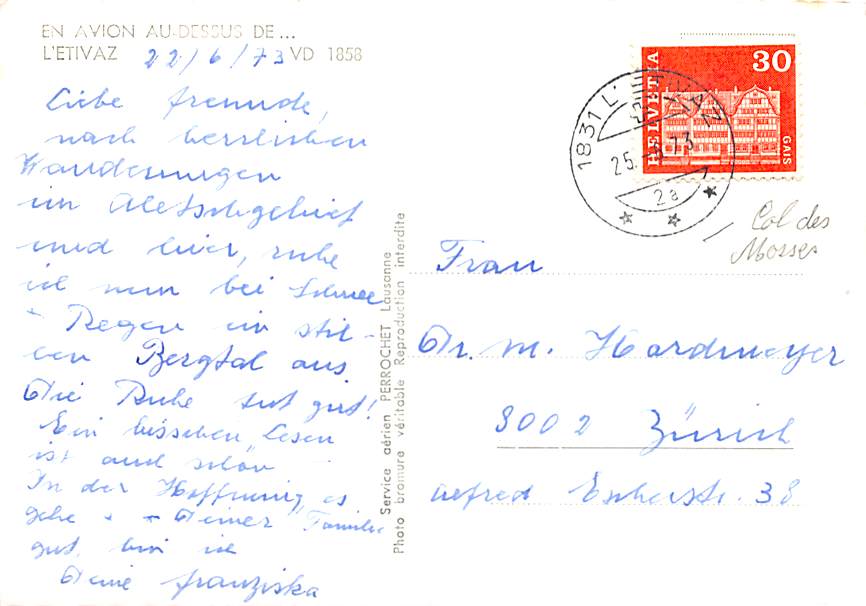 EN AVION AU-DESSUS DE...
L'ETIVAZ 22/6/73 VD 1858
Liebe freunde,
nach herrlichen
Wanderungen
im Aletschgebiet
und hier, ruhe
ich nun bei Schnee
+ Regen im stil-
len Bergtal aus
Die Ruhe tut gut!
Ein bisschen Lesen
ist auch schön
In der Hoffnung, es
gehe + Deiner Familie
gut, bin ich
Deine franziska
Service aérien PERROCHET Lausanne
Photo bromure véritable Reproduction interdite
HELVETIA
30
GAIS
1831 L'ETIVAZ
25. 73
2a
Col des
Mosses
Frau
Dr. M. Hardmeyer
8002 Zürich
Alfred Escherstr. 38